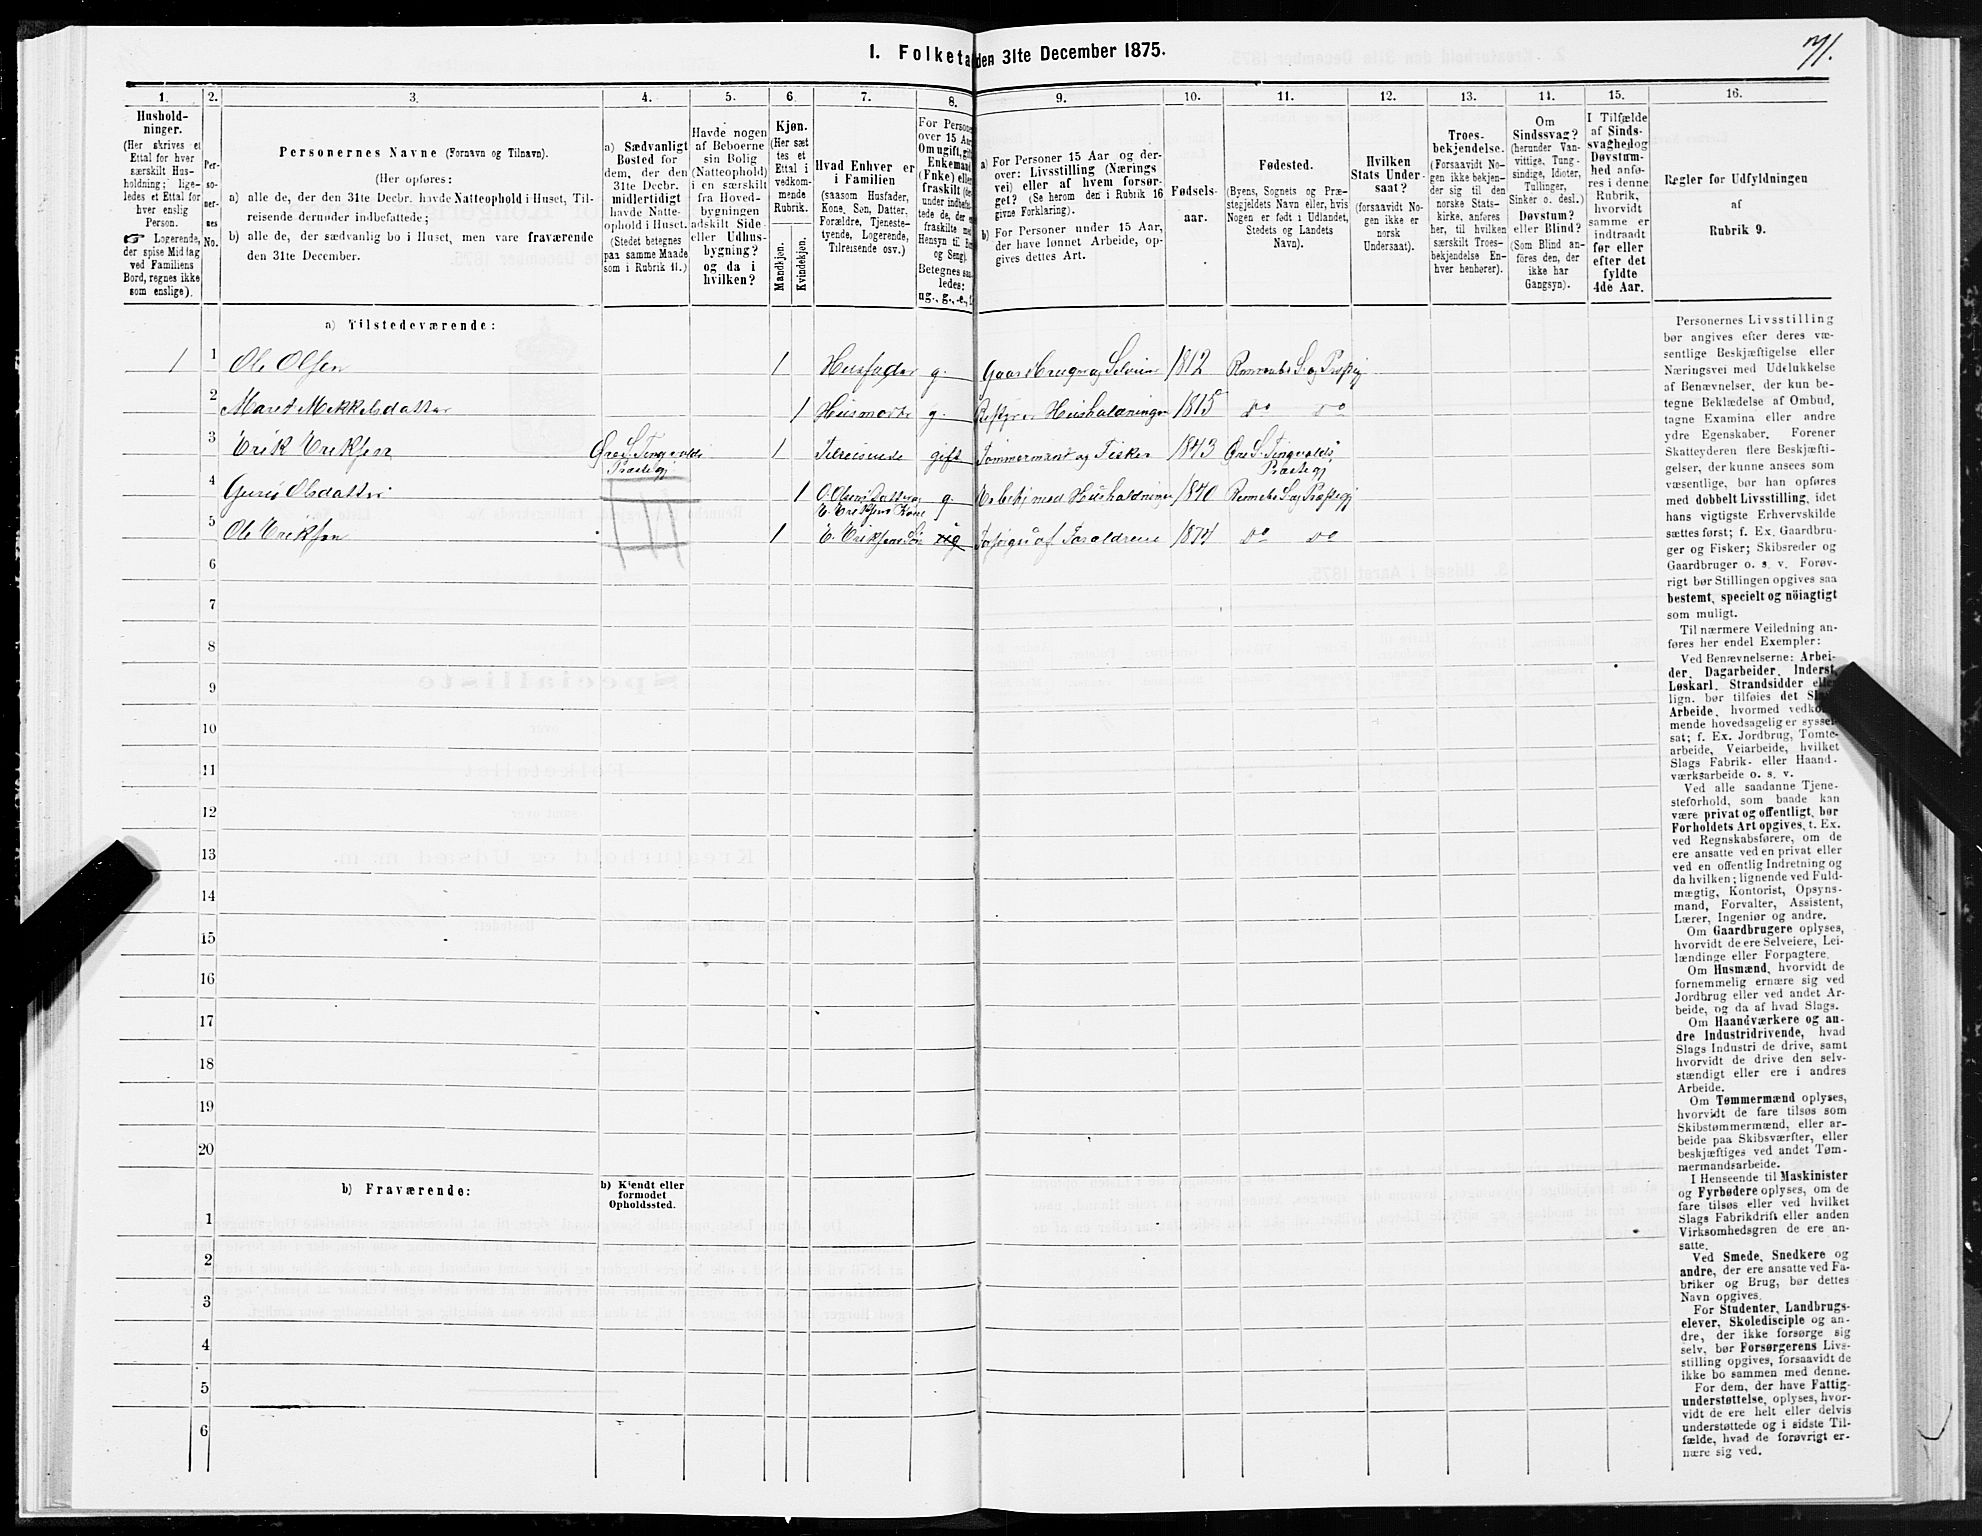 71.
I. Folketa den 31te December 1875.
1. 2. 3. 4. 5. 6. 7. 8. 9. 10. 11. 12. 13. 14. 15. 16.
Hushold-
ninger.
(Her skrives et
Ettal for hver
særskilt Hus-
holdning; lige-
ledes et Ettal for
hver enslig
Person.
Logerende,
der spise Middag
ved Familiens
Bord, regnes ikke
som enslige).
Per-
so-
ner-
nes
No.
Personernes Navne (Fornavn og Tilnavn).
(Her opføres:
a) alle de, der den 31te Decbr. havde Natteophold i Huset, Til-
reisende derunder indbefattede;
b) alle de, der sædvanlig bo i Huset, men vare fraværende
den 31te December.
a) Sædvanligt
Bosted for
dem, der den
31te Decbr.
midlertidigt
havde Natte-
ophold i Huset.
(Stedet betegnes
paa samme Maade
som i Rubrik 11.)
Havde nogen
af Beboerne
sin Bolig
(Natteophold)
i en særskilt
fra Hoved-
bygningen
adskilt Side-
eller Udhus-
bygning?
og da i
hvilken?
Kjøn.
(Her sæt-
tes et
Ettal i
vedkom-
mende
Rubrik.
Mandkjøn.
Kvindekjøn.
Hvad Enhver er
i Familien
(saasom Husfader,
Kone, Søn, Datter,
Forældre, Tjeneste-
tyende, Logerende,
Tilreisende osv.)
For Persone
over 15 Aar
Om ugift, gift
Enkemand
(Enke) eller
fraskilt (der-
under indbefat-
tede de, der ere
fraskilte med
Hensyn til Bord
og Seng).
Betegnes saa-
ledes:
ug., g., e., f.
a) For Personer 15 Aar og der-
over: Livsstilling (Nærings-
vei) eller af hvem forsør-
get? (Se herom den i Rubrik 16
givne Forklaring).
b) For Personer under 15 Aar,
der have lønnet Arbeide, op-
gives dettes Art.
Fødsels-
aar.
Fødested.
(Byens, Sognets og Præ-
stegjeldets Navn eller, hvis
Nogen er født i Udlandet,
Stedets og Landets
Navn).
Hvilken
Stats Under-
saat?
(forsaavidt No-
gen ikke er
norsk
Undersaat).
Troes-
bekjendelse.
(Forsaavidt No-
gen ikke bekjen-
der sig til den
norske Stats-
kirke, anføres
her, til hvilken
særskilt Troes-
bekjendelse En-
hver henhører).
Om
Sindssvag?
(herunder Van-
vittige, Tung-
sindige, Idioter,
Tullinger,
Sinker o. desl.)
Døvstum?
eller Blind?
(Som Blind an-
føres den, der
ikke har
Gangsyn).
I Tilfælde
af Sinds-
svaghed og
Døvstum-
hed anfø-
res i denne
Rubrik,
hvorvidt
samme er
indtraadt
før eller
efter det
fyldte
4de Aar.
Regler for Udfyldningen
af
Rubrik 9.
a) Tilstedeværende:
1 1 Ole Olsen 1 Husfader g. Gaardbruger og Selveier 1812 S. og Præstegj
2 Marit Mikkelsdatter 1 Husmoder g. Bestyrer Husholdningen 1815 do do
3 Erik Eriksen Øre S. Tingvolds Præstegj 1 Tilreisende gift Tømmermand og Fisker 1843 Øre S. Tingvolds Præstegj
4 Guri Olsdatter 1 O. Olsens Datter og E. Eriksens Kone g. med Husholdningen 1840 S. og Præstegj
5 Ole Eriksen 1 E. Eriksens Søn ug Forsørges af Forældrene 1874 do do
6
7
8
9
10
11
12
13
14
15
16
17
18
19
20
b) Fraværende:
b) Kjendt eller
formodet
Opholdssted.
1
2
3
4
5
6
Personernes Livsstilling
bør angives efter deres væ-
sentlige Beskjæftigelse eller
Næringsvei med Udelukkelse
af Benævnelser, der kun be-
tegne Beklædelse af Ombud,
tagne Examina eller andre
ydre Egenskaber. Forener
Skatteyderen flere Beskjæfti-
gelser, der kunne ansees som
væsentlige, bør han opføres
med dobbelt Livsstilling, idet
hans vigtigste Erhvervskilde
sættes først; f. Ex. Gaardbru-
ger og Fisker; Skibsreder og
Gaardbruger o. s. v. Forøv-
rigt bør Stillingen opgives saa
bestemt, specielt og nöiagtigt
som muligt.
Til nærmere Veiledning an-
føres her endel Exempler:
Ved Benævnelserne: Arbei-
der, Dagarbeider, Inderst,
Løskarl, Strandsidder eller
lign. bør tilføies det Slags
Arbeide, hvormed vedkom-
mende hovedsagelig er syssel-
sat; f. Ex. Jordbrug, Tomte-
arbeide, Veiarbeide, hvilket
Slags Fabrik- eller Haand-
værksarbeide o. s. v.
Ved alle saadanne Tjene-
steforhold, som baade kan
være privat og offentligt, bør
Forholdets Art opgives, t. Ex.
ved Regnskabsførere, om de
ere ansatte ved en privat eller
ved en offentlig Indretning og
da hvilken; lignende ved Fuld-
mægtig, Kontorist, Opsyns-
mand, Forvalter, Assistent,
Lærer, Ingeniør og andre.
Om Gaardbrugere oplyses,
hvorvidt de ere Selveiere, Lei-
lændinge eller Forpagtere.
Om Husmænd, hvorvidt de
fornemmelig ernære sig ved
Jordbrug eller ved andet Ar-
beide, og da af hvad Slags.
Om Haandværkere og an-
dre Industridrivende, hvad
Slags Industri de drive, samt
hvorvidt de drive den selv-
stændigt eller ere i andres
Arbeide.
Om Tømmermænd oplyses,
hvorvidt de fare tilsøs som
Skibstømmermænd, eller ar-
beide paa Skibsværfter, eller
beskjæftiges ved andet Tøm-
mermandsarbeide.
I Henseende til Maskinister
og Fyrbødere oplyses, om de
fare tilsøs eller ved hvilket
Slags Fabrikdrift eller anden
Virksomhedsgren de ere an-
satte.
Ved Smede, Snedkere og
andre, der ere ansatte ved Fa-
briker og Brug, bør dettes
Navn opgives.
For Studenter, Landbrugs-
elever, Skoledisciple og an-
dre, der ikke forsørge sig
selv, bør Forsørgerens Livs-
stilling opgives, forsaavidt de
ikke bo sammen med denne.
For dem, der have Fattig-
understøttelse, oplyses, hvor-
vidt de ere helt eller delvis
understøttede og i sidste Til-
fælde, hvad de forøvrigt er-
nære sig ved.